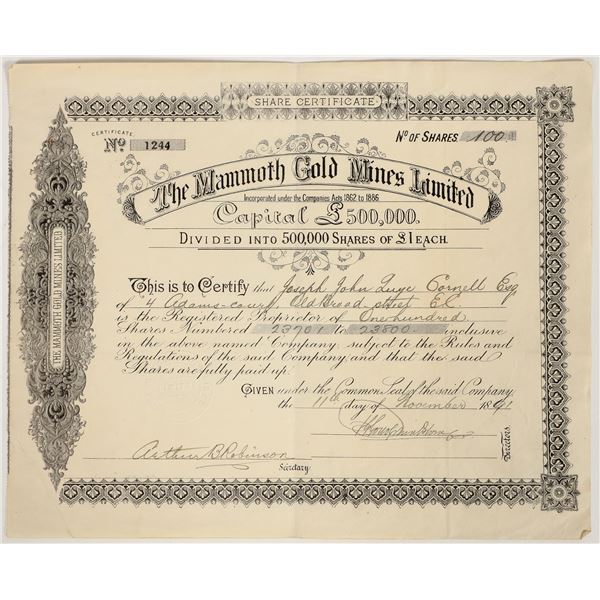 SHARE CERTIFICATE.
CERTIFICATE
No 1244
No OF SHARES 100
The Mammoth Gold Mines Limited
Incorporated under the Companies Acts 1862 to 1886
Capital £500,000.
DIVIDED INTO 500,000 SHARES OF £1 EACH.
THE MAMMOTH GOLD MINES LIMITED
This is to Certify that Joseph John Cornell Esq
of 4 Adams-court, Old Broad street E.C.
is the Registered Proprietor of One hundred
Shares Numbered 23701 to 23800 inclusive
in the above named Company, subject to the Rules and
Regulations of the said Company and that the said
Shares are fully paid up.
GIVEN under the Common Seal of the said Company,
the 11th day of November 1891
Directors
Arthur B Robinson
Secretary